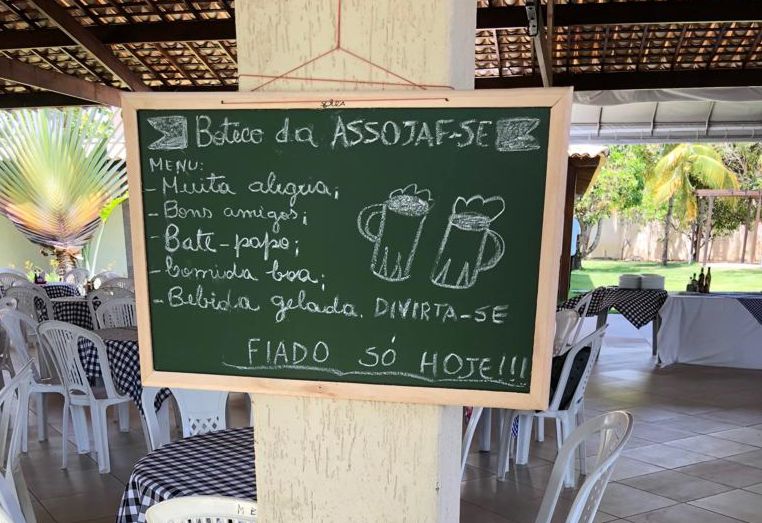 Boteco da ASSOJAF-SE
MENU:
- Muita alegria;
- Bons amigos;
- Bate-papo;
- Comida boa;
- Bebida gelada. DIVIRTA-SE
FIADO SÓ HOJE!!!